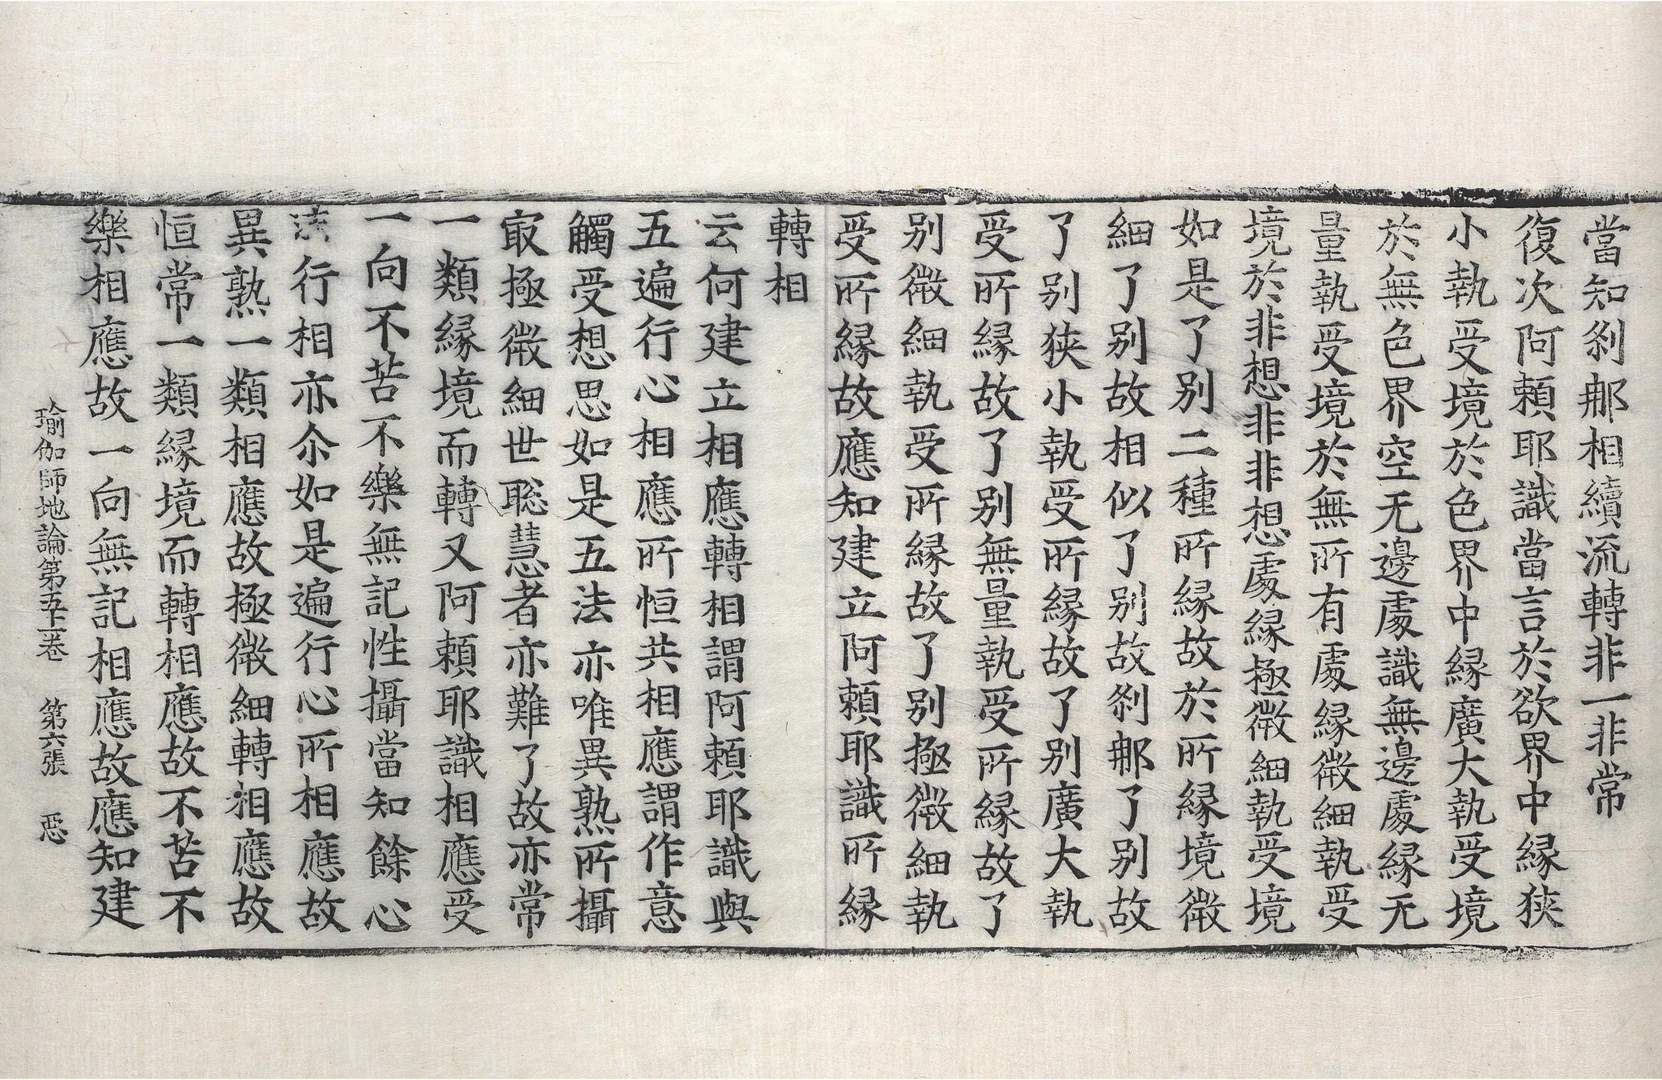 當知刹那相續流轉非一非常
復次阿賴耶識當言於欲界中縁狹
小執受境於色界中縁廣大執受境
於無色界空无邊處識無邊處縁无
量執受境於無所有處縁微細執受
境於非想非非想處縁極微細執受境
如是了別二種所縁故於所縁境微
細了別故相似了別故刹那了別故
了別狹小執受所縁故了別廣大執
受所縁故了別無量執受所縁故了
別微細執受所縁故了別極微細執
受所縁故應知建立阿賴耶識所縁
轉相
云何建立相應轉相謂阿賴耶識與
五遍行心相應所恒共相應謂作意
觸受想思如是五法亦唯異熟所攝
冣極微細世聡慧者亦難了故亦常
一類縁境而轉又阿賴耶識相應受
一向不苦不樂無記性攝當知餘心
法行相亦尒如是遍行心所相應故
異熟一類相應故極微細轉相應故
恒常一類縁境而轉相應故不苦不
樂相應故一向無記相應故應知建
瑜伽師地論第五十一卷 第六張 惡